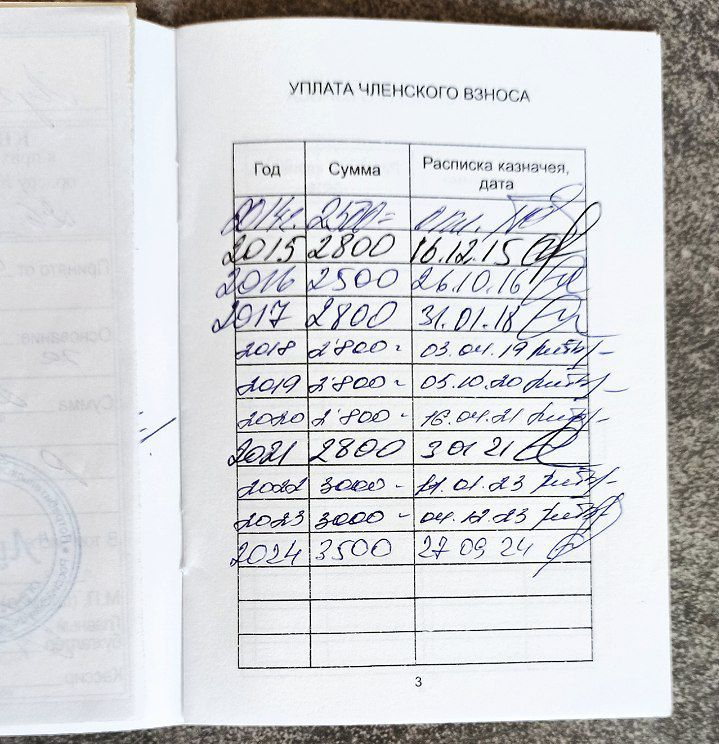 УПЛАТА ЧЛЕНСКОГО ВЗНОСА
Год Сумма Расписка казначея, дата
2014г. 2500=
2015 2800 16.12.15
2016 2500 26.10.16
2017 2800 31.01.18
2018 2800- 03.04.19
2019 2800- 05.10.20
2020 2800- 16.04.21
2021 2800 3 01 21
2022 3000- 11.01.23
2023 3000- 04.12.23
2024 3500 27 09 24
3
Принято от
Основание:
Сумма
М.П.
Главный
бухгалтер
Кассир